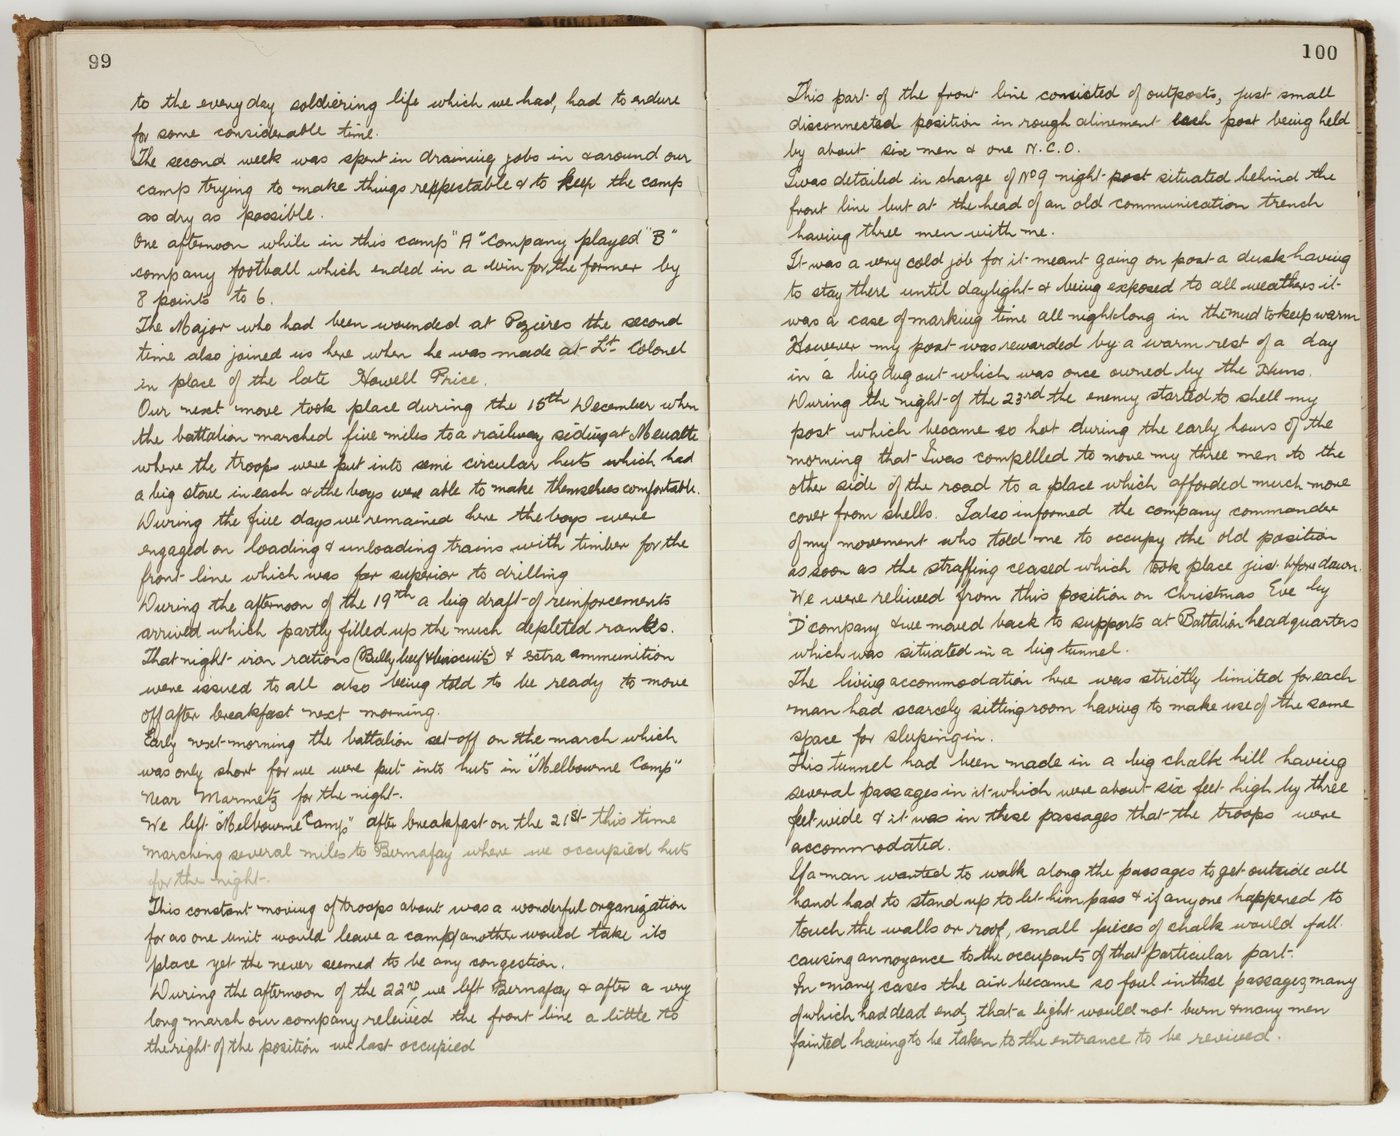 99
to the everyday soldiering life which we had, had to endure
for some considerable time.
The second week was spent in draining jobs in & around our
camp trying to make things reppestable & to keep the camp
as dry as possible.
One afternoon while in this camp "A" Company played "B"
company football which ended in a win for the former by
8 points to 6.
The Major who had been wounded at Pozières the second
time also joined us here when he was made at Lt. Colonel
in place of the late Howell Price.
Our next move took place during the 15th December when
the battalion marched five miles to a railway siding at Meualte
where the troops were put into semi circular huts which had
a big stove in each & the boys were able to make themselves comfortable.
During the five days we remained here the boys were
engaged on loading & unloading trains with timber for the
front line which was far superior to drilling
During the afternoon of the 19th a big draft of reinforcements
arrived which partly filled up the much depleted ranks.
That night iron rations (Bully beef & biscuits) & extra ammunition
were issued to all also being told to be ready to move
off after breakfast next morning.
Early next morning the battalion set off on the march which
was only short for we were put into huts in "Melbourne Camp"
near Marmetz for the night.
We left "Melbourne Camp" after breakfast on the 21st this time
marching several miles to Bernafay where we occupied huts
for the night.
This constant moving of troops about was a wonderful organization
for as one unit would leave a camp another would take its
place yet the never seemed to be any congestion.
During the afternoon of the 22nd we left Bernafay & after a very
long march our company releived the front line a little to
the right of the position we last occupied
100
This part of the front line consisted of outposts, just small
disconnected position in rough alinement each post being held
by about six men & one N.C.O.
I was detailed in charge of No 9 night post situated behind the
front line but at the head of an old communication trench
having three men with me.
It was a very cold job for it meant going on post a dusk having
to stay there until daylight & being exposed to all weathers it
was a case of marking time all night long in the mud to keep warm
However my post was rewarded by a warm rest of a day
in a big dug out which was once owned by the Huns.
During the night of the 23rd the enemy started to shell my
post which became so hot during the early hours of the
morning that I was compelled to move my three men to the
other side of the road to a place which afforded much more
cover from shells. I also informed the company commander
of my movement who told me to occupy the old position
as soon as the straffing ceased which took place just before dawn.
We were relieved from this position on Christmas Eve by
"D" company & we moved back to supports at Battalion headquarters
which was situated in a big tunnel.
The living accommodation here was strictly limited for each
man had scarcely sitting room having to make use of the same
space for sleeping in.
This tunnel had been made in a big chalk hill having
several passages in it which were about six feet high by three
feet wide & it was in these passages that the troops were
accommodated.
If a man wanted to walk along the passages to get outside all
hand had to stand up to let him pass & if anyone happened to
touch the walls or roof, small pieces of chalk would fall
causing annoyance to the occupants of that particular part.
In many cases the air became so foul in these passages, many
of which had dead end, that a light would not burn & many men
fainted having to be taken to the entrance to be revived.